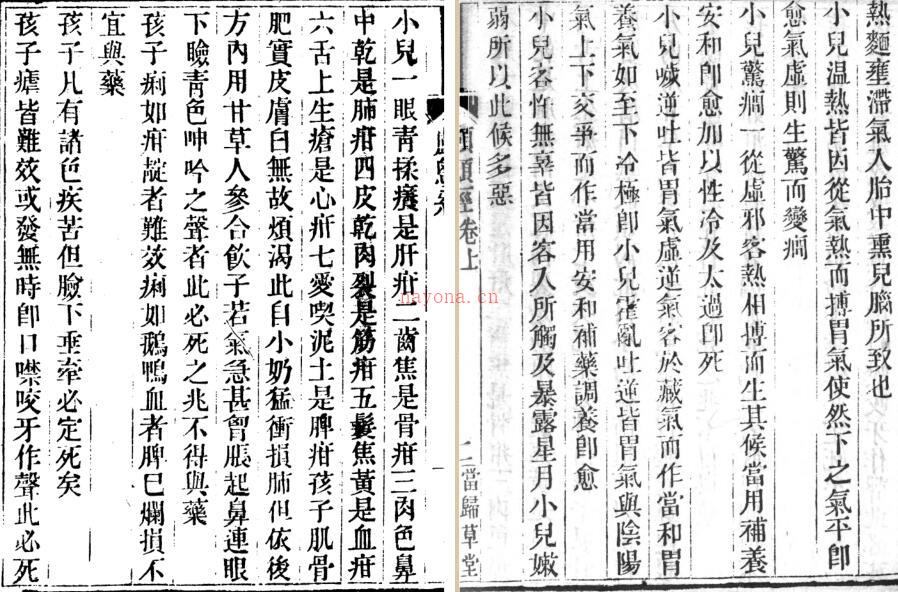 熱麵壅滯氣入胎中熏兒腦所致也
小兒温熱皆因從氣熱而搏胃氣使然下之氣平卽
愈氣虛則生驚而變癎
小兒驚癎一從虛邪客熱相搏而生其候當用補養
安和卽愈加以性冷及太過卽死
小兒噦逆吐皆胃氣虛逆氣客於藏氣而作當和胃
養氣如至下冷極卽小兒霍亂吐逆皆胃氣與陰陽
氣上下交爭而作當用安和補藥調養卽愈
小兒客忤無辜皆因客入所觸及暴露星月小兒嫩
弱所以此候多惡
顱顖經卷上
二當歸草堂
小兒一眼靑揉癢是肝疳二齒焦是骨疳三肉色鼻
中乾是肺疳四皮乾肉裂是筋疳五髮焦黃是血疳
六舌上生瘡是心疳七愛喫泥土是脾疳孩子肌骨
肥實皮膚白無故煩渴此白小奶猛衝損肺但依後
方內用甘草人參合飲子若氣急甚胷脹起鼻連眼
下瞼靑色呻吟之聲者此必死之兆不得與藥
孩子痢如疳靛者難效痢如鵝鴨血者脾巳爛損不
宜與藥
孩子凡有諸色疾苦但臉下垂牽必定死矣
孩子瘧皆難效或發無時卽口噤咬牙作聲此必死
nayona.cn